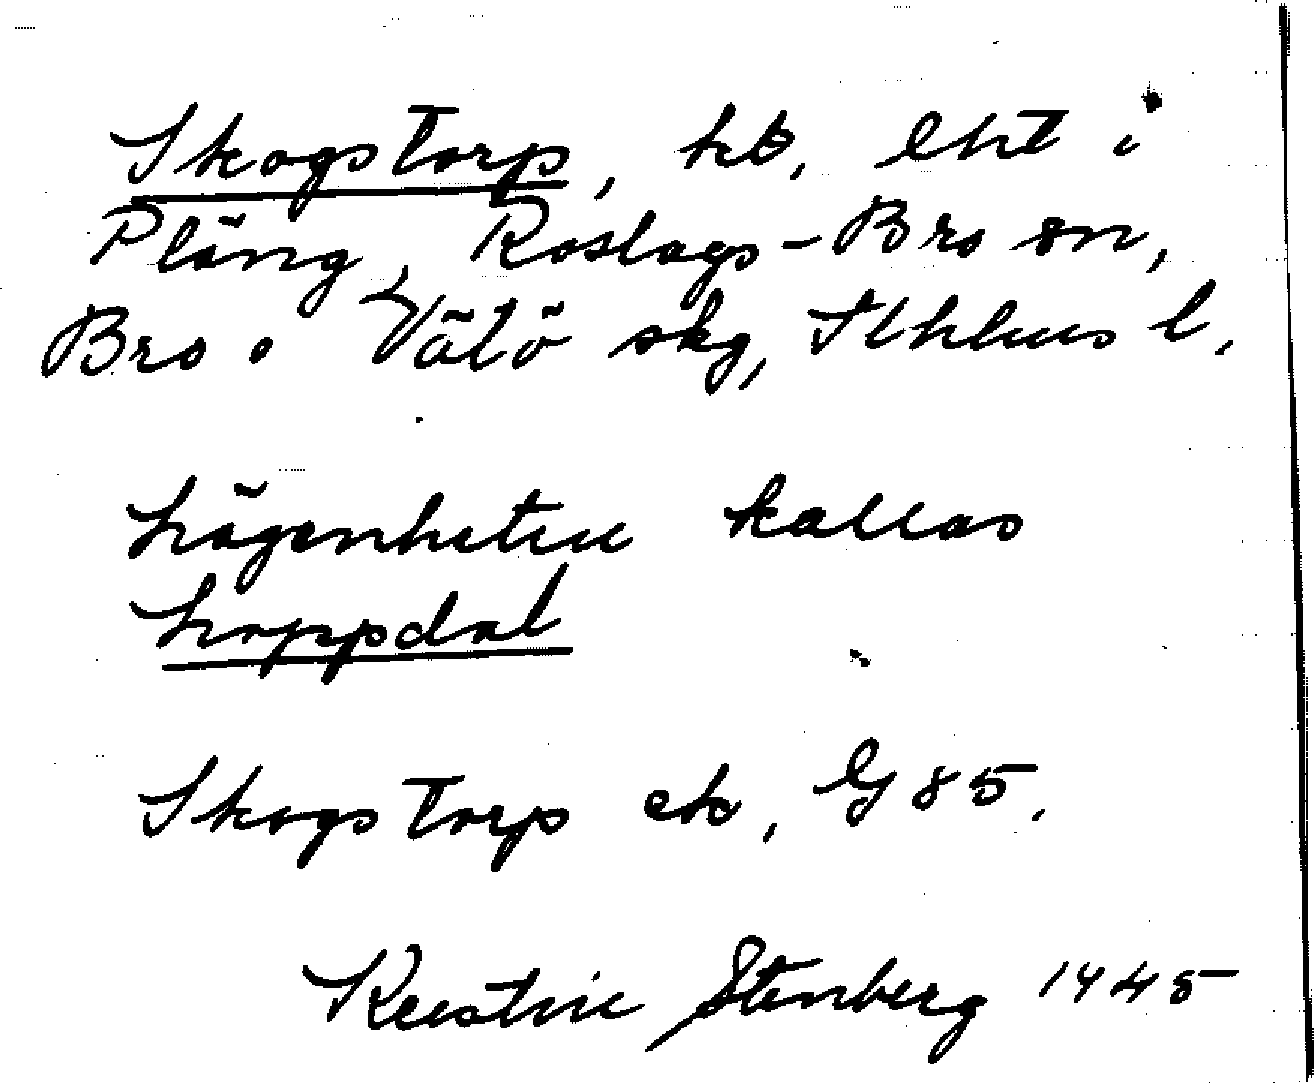 Skogstorp, kb, lht i
Pläng, Roslags-Bro sn,
Bro o Vätö skg, Sthlms l.
Lägenheten kallas
Loppdal
Skogstorp ek, G 85.
Kerstin Stenberg 1945